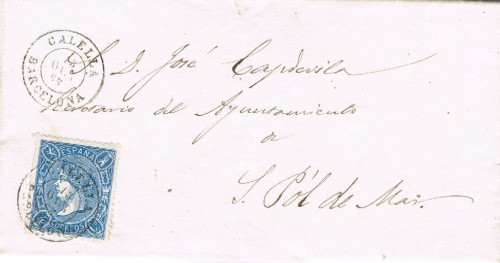 CALELLA
BARCELONA
D. José Capdevila
Secretario del Ayuntamiento
a
S. Pól de Mar.
ESPAÑA
CUARTOS